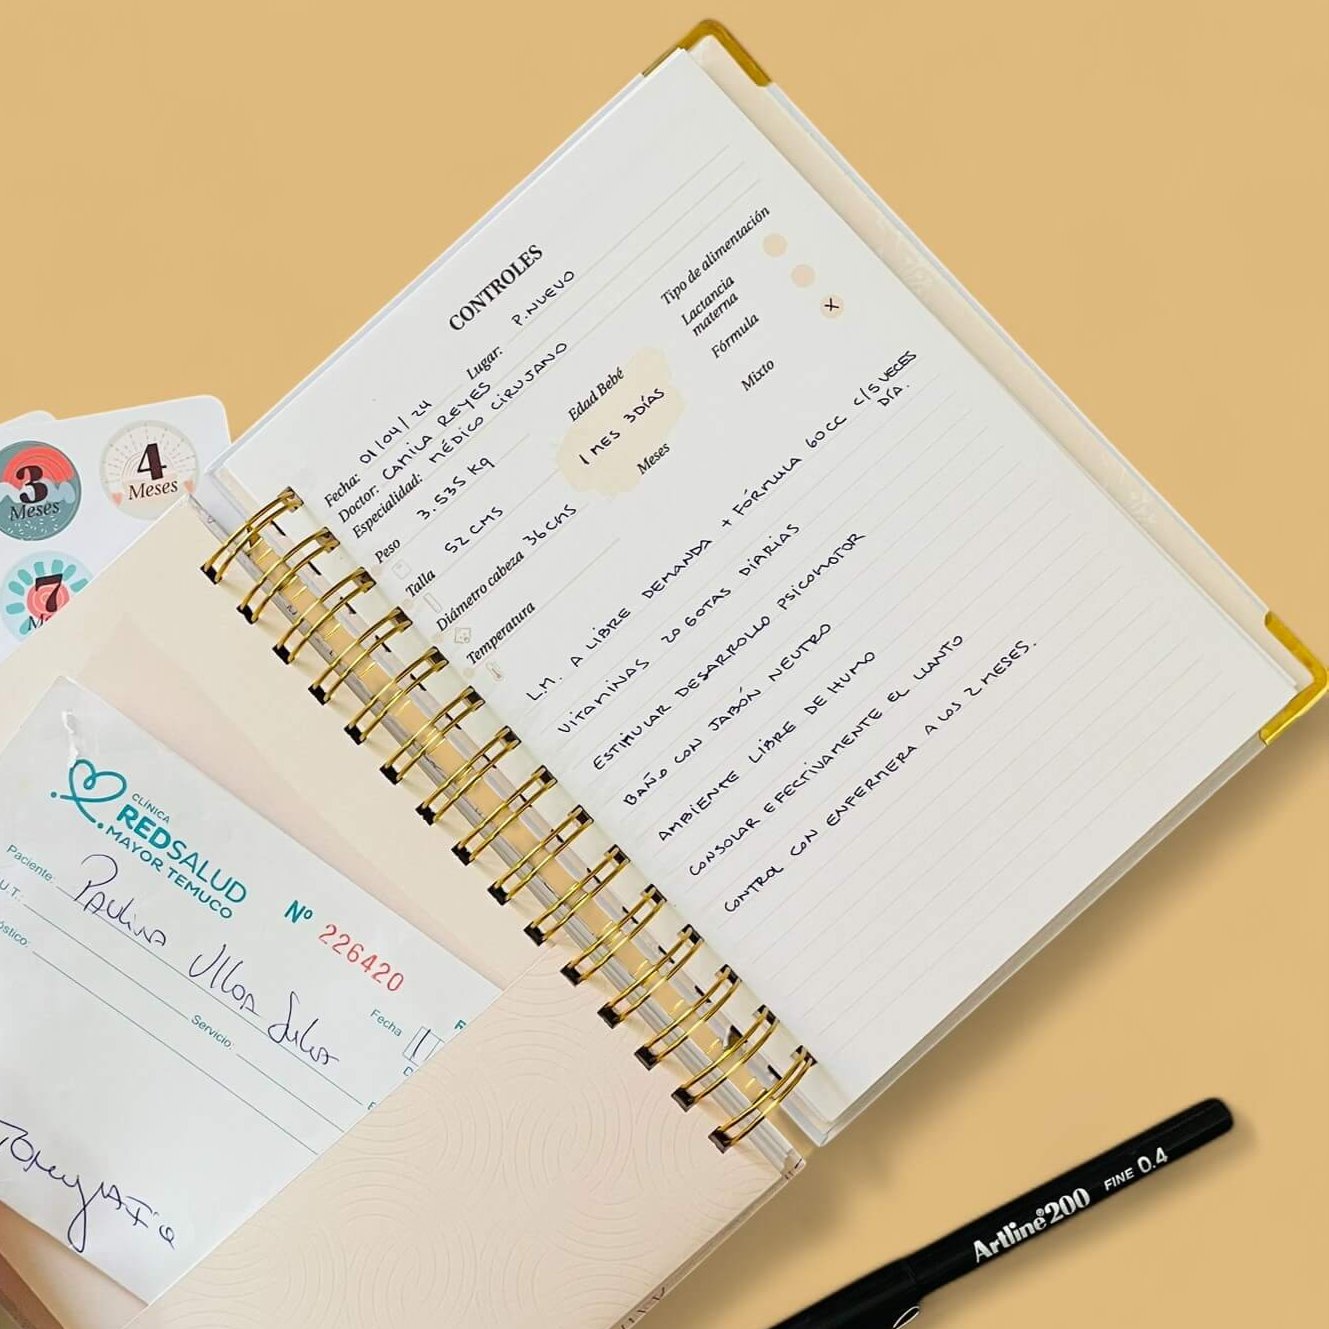 CONTROLES
Fecha: 01/04/24 Lugar: P. NUEVO
Doctor: CAMILA REYES
Especialidad: MÉDICO CIRUJANO
Peso 3.535 Kg
Talla 52 CMS
Diámetro cabeza 36 CMS
Temperatura
Edad Bebé
1 MES 3 DÍAS
Meses
Tipo de alimentación
Lactancia
materna
Fórmula
Mixto X
L.M. A LIBRE DEMANDA + FÓRMULA 60 CC C/5 VECES
DÍA.
VITAMINAS 20 GOTAS DIARIAS
ESTIMULAR DESARROLLO PSICOMOTOR
BAÑO CON JABÓN NEUTRO
AMBIENTE LIBRE DE HUMO
CONSOLAR EFECTIVAMENTE EL LLANTO
CONTROL CON ENFERMERA A LOS 2 MESES.
3
Meses
4
Meses
7
CLÍNICA
REDSALUD
MAYOR TEMUCO
Nº 226420
Paciente: Paulina Ulloa
U.T.:
óstico:
Servicio:
Fecha
Artline®200 FINE 0.4